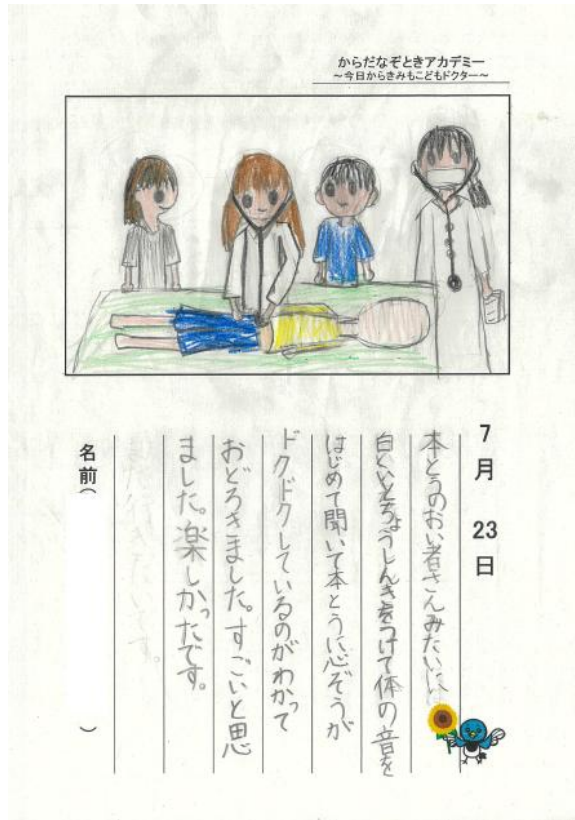 からだなぞときアカデミー
～今日からきみもこどもドクター～
7月 23日
本とうのおい者さんみたいに
白いとちょうしんきをつけて体の音を
はじめて聞いて本とうに心ぞうが
ドクドクしているのがわかって
おどろきました。すごいと思い
ました。楽しかったです。
名前( )